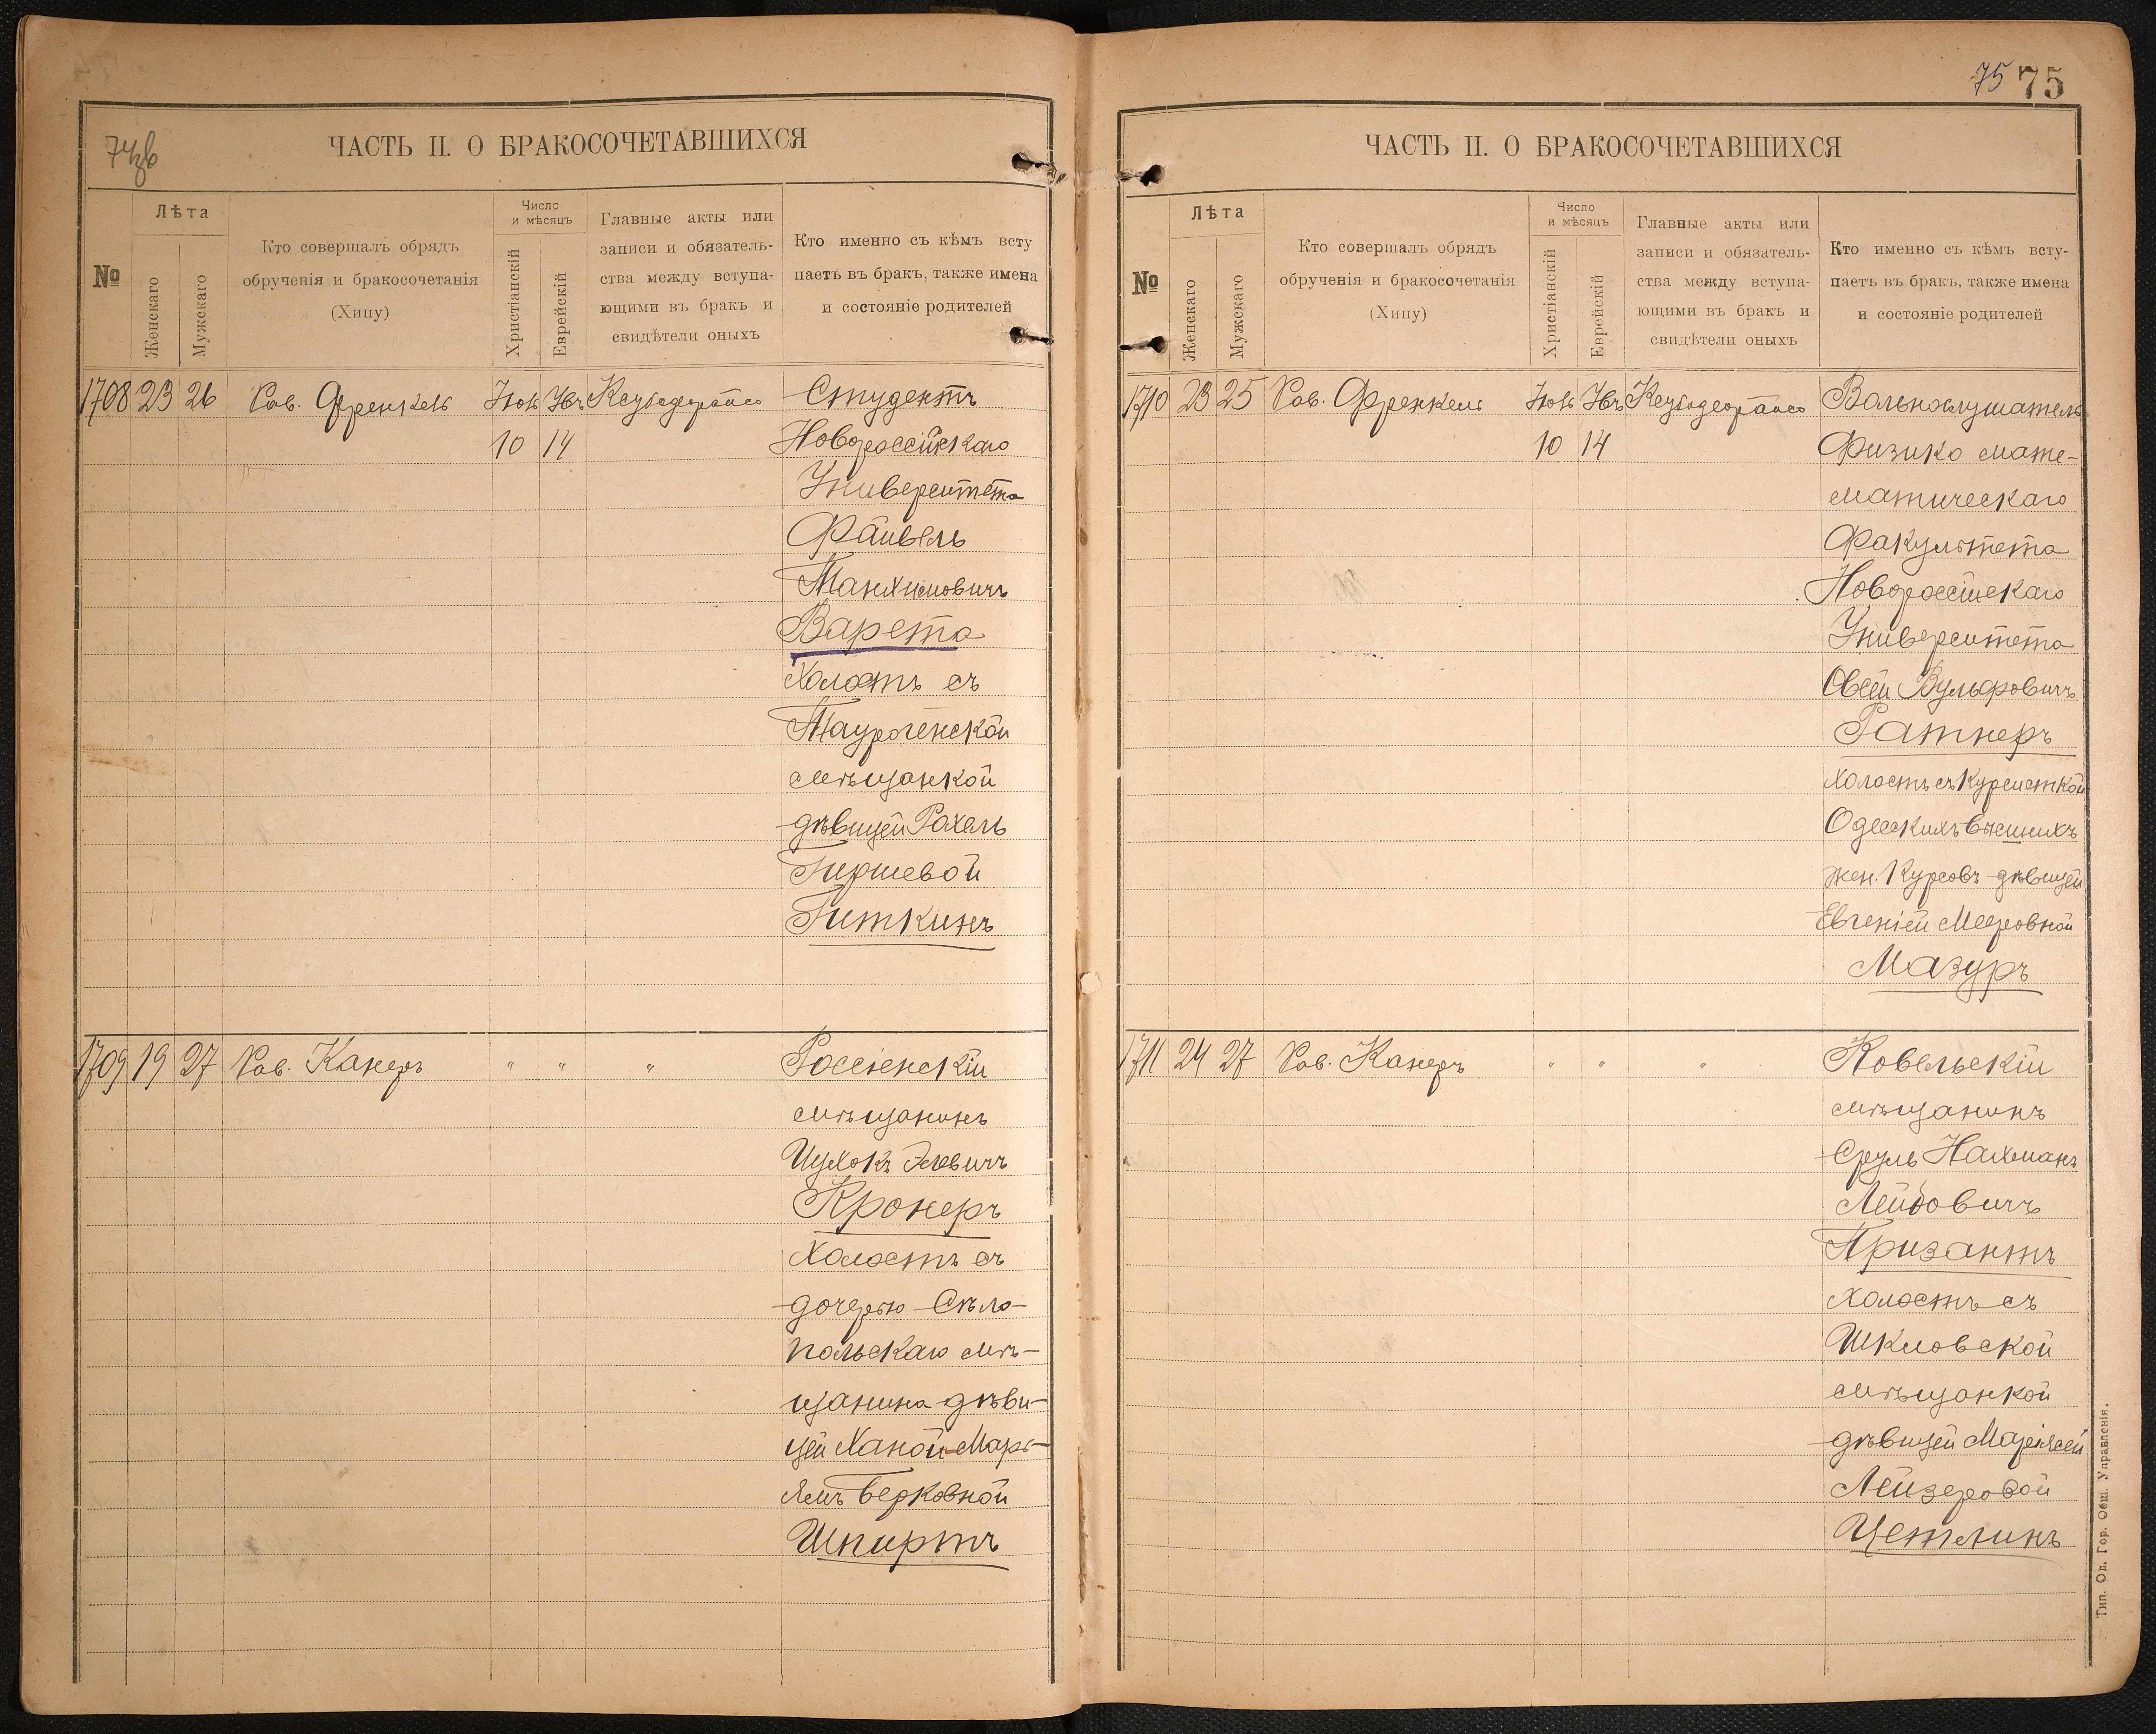 74зв
ЧАСТЬ II. О БРАКОСОЧЕТАВШИХСЯ
№
Лѣта
Женскаго
Мужскаго
Кто совершалъ обрядъ
обрученія и бракосочетанія
(Хипу)
Число
и мѣсяцъ
Христіанскій
Еврейскій
Главные акты или
записи и обязатель-
ства между вступа-
ющими въ бракъ и
свидѣтели оныхъ
Кто именно съ кѣмъ всту
паетъ въ бракъ, также имена
и состояніе родителей
1708 23 26 Рав. Френкель Студентъ
10 14 Новороссійскаго
Университета
Файвель
Варета
Холостъ съ
Таурогенской
мѣщанкой
дѣвицей Рахель
Гиршевой
Гиткинъ
1709 19 27 Рав. Канеръ " " " Россіенскій
мѣщанинъ
Ицхокъ
Кронеръ
Холостъ съ
дочерью Бѣло-
польскаго мѣ-
щанина дѣви-
цей Ханой-Марь-
ямъ Берковной
Шпиртъ
75 75
ЧАСТЬ II. О БРАКОСОЧЕТАВШИХСЯ
№
Лѣта
Женскаго
Мужскаго
Кто совершалъ обрядъ
обрученія и бракосочетанія
(Хипу)
Число
и мѣсяцъ
Христіанскій
Еврейскій
Главные акты или
записи и обязатель-
ства между вступа-
ющими въ бракъ и
свидѣтели оныхъ
Кто именно съ кѣмъ всту-
паетъ въ бракъ, также имена
и состояніе родителей
1710 23 25 Рав. Френкель Вольнослушатель
10 14 Физико мате-
матическаго
Факультета
Новороссійскаго
Университета
Овсей Вульфовичъ
Ратнеръ
холостъ съ Курсисткой
Одесскихъ высшихъ
жен. Курсовъ дѣвицей
Евгеніей Мееровной
Мазуръ
1711 24 27 Рав. Канеръ " " " Ковельскій
мѣщанинъ
Сруль Нахманъ
Лейбовичъ
Призантъ
холостъ съ
Шкловской
мѣщанкой
дѣвицей Маріясей
Лейзеровой
Цетлинъ
Тип. Од. Гор. Общ. Управленія.